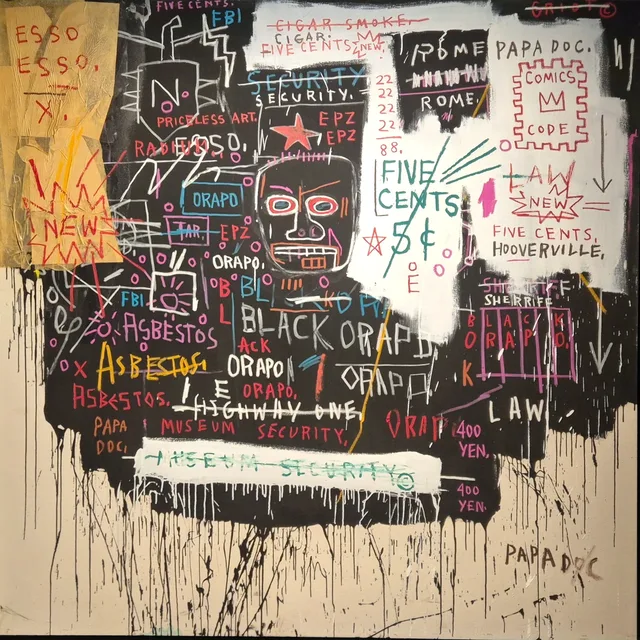 FIVE CENTS.
FBI
CIGAR SMOKE.
CIGAR.
FIVE CENTS. NEW.
ESSO
ESSO.
X.
NEW
N.
PRICELESS ART.
SECURITY
SECURITY.
EPZ
EPZ
22
22
22
22
88.
ROME
ROME.
PAPA DOC.
COMICS
CODE
ORAPO
TAR.
EPZ
ORAPO.
FIVE
CENTS.
5¢
LAW
NEW
FIVE CENTS.
HOOVERVILLE,
FBI.
ASBESTOS
ASBESTOS.
ASBESTOS.
BLACK
ACK
ORAPO
ORAPO.
SHERRIFF
SHERRIFF
BLACK
ORAPO.
LAW
HIGHWAY ONE,
PAPA
DOC,
MUSEUM SECURITY,
MUSEUM SECURITY.©
400
YEN.
400
YEN.
PAPA DOC